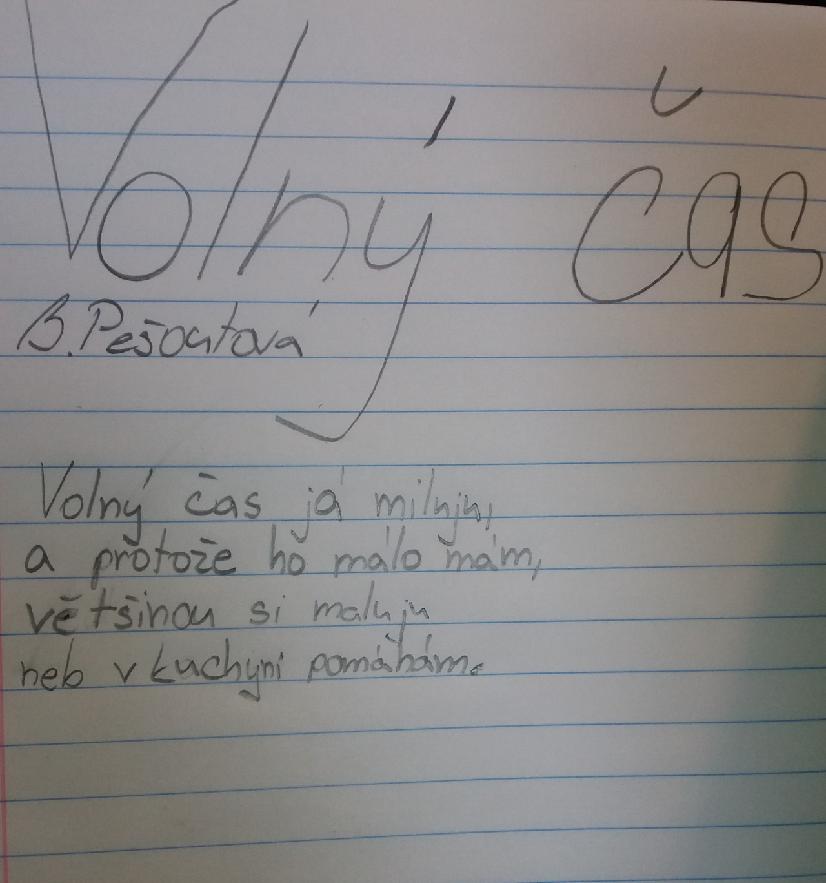 Volný čas
B. Pešoutová
Volný čas já miluju,
a protože ho málo mám,
většinou si maluju
neb v kuchyni pomáhám.